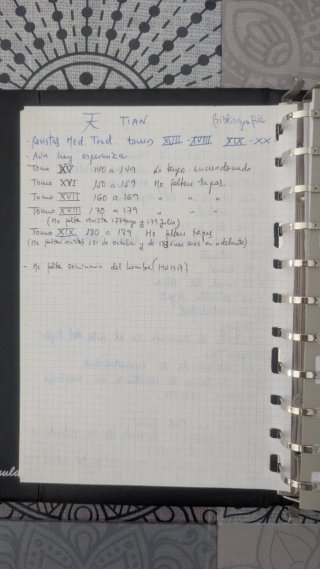 天 TIAN Bibliografia
- Revistas Med Trad tomos XVII - XVIII XIX - XX
- Aun hay esperanza
Tomo XV 140 a 149 Lo tengo encuadernado
Tomo XVI 150 a 159 Me faltan tapas.
Tomo XVII 160 a 169 " " "
Tomo XVIII 170 a 179 " " "
(Me falta Revista 177 mayo y 179 julio)
Tomo XIX 180 a 189. Me faltan tapas
(Me faltan revistas 181 de octubre y de
- Me falta Seminario del hombre (MUNA)